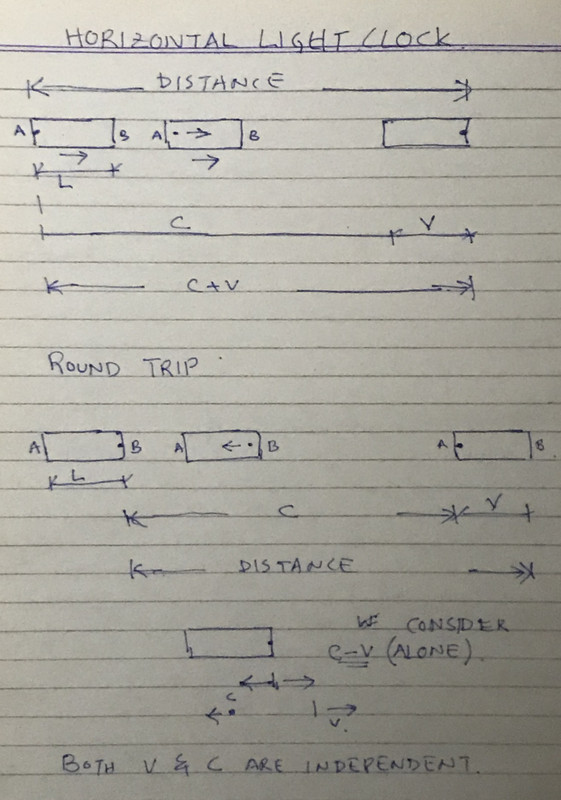 HORIZONTAL LIGHT CLOCK.
DISTANCE
A B A B
L
C V
C+V
ROUND TRIP
A B A B A B
L
C V
DISTANCE
WE CONSIDER
C-V (ALONE).
C
V.
BOTH V & C ARE INDEPENDENT.